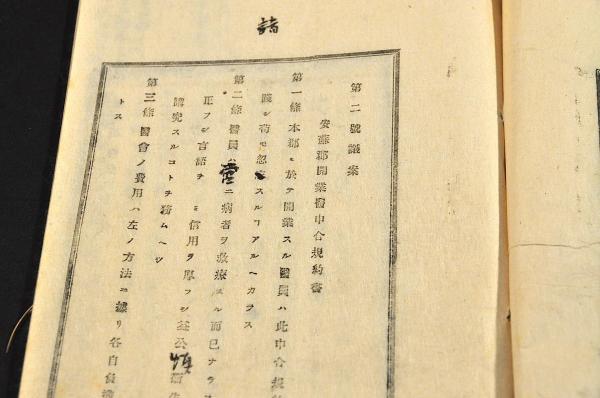 諸
第二號議案
安蘇郡開業醫申合規約書
第一條本郡ニ於テ開業スル醫員ハ此申合規約
シ苟モ忽 スルヿアルヘカラス
第二條醫員ハ 啻ニ病者ヲ救療スル而已ナラ
正フシ言語ヲ ミ信用ヲ厚フシ 公 衛生
講究スルコトヲ務ムヘシ
第三條醫會ノ費用ハ左ノ方法ニ據リ各自負擔
トス